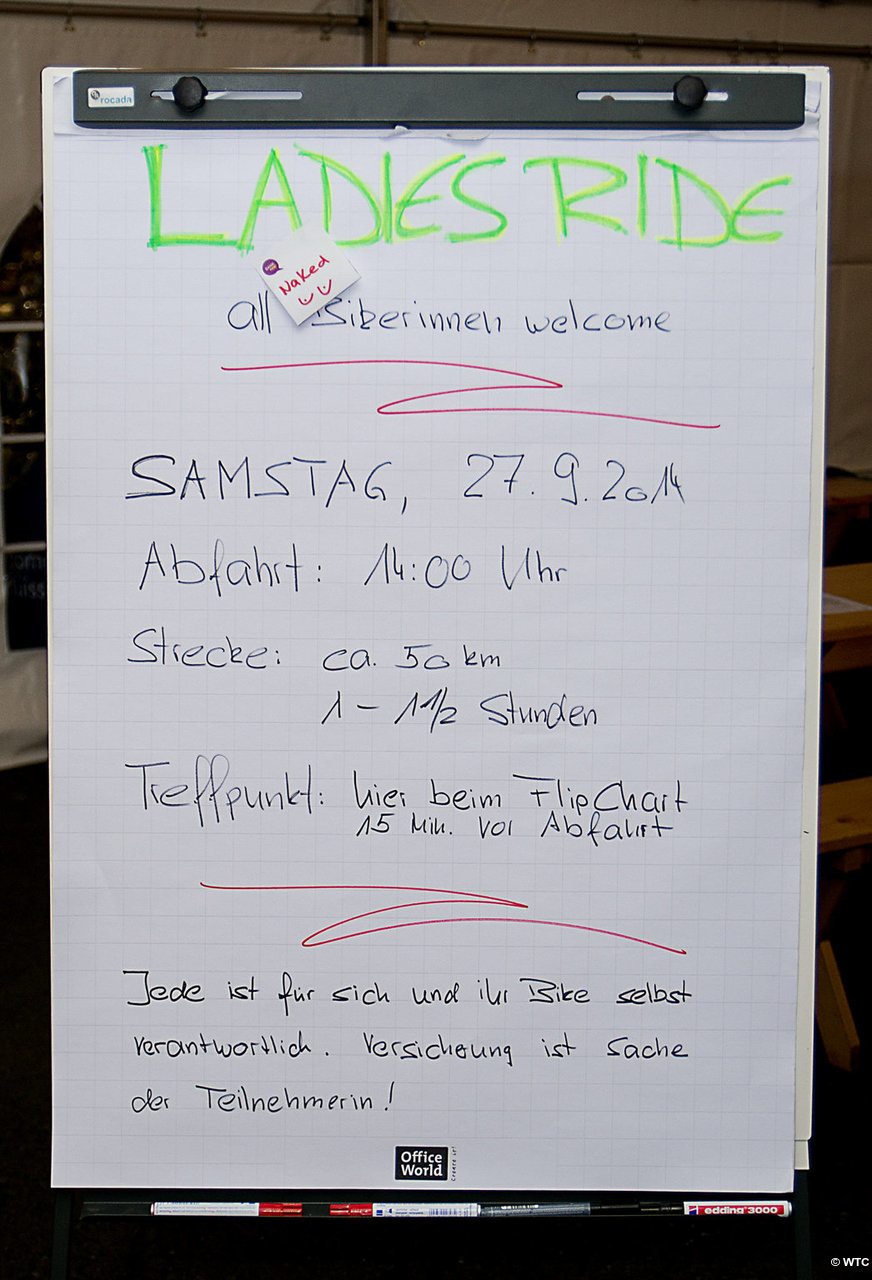 rocada
LADIES RIDE
Naked
all Bikerinnen welcome
SAMSTAG, 27.9.2014
Abfahrt: 14:00 Uhr
Strecke: ca. 50 km
1 – 1 1/2 Stunden
Treffpunkt: hier beim FlipChart
15 Min. vor Abfahrt
Jede ist für sich und ihr Bike selbst
verantwortlich. Versicherung ist Sache
der Teilnehmerin!
Office
World
edding 3000
© WTC